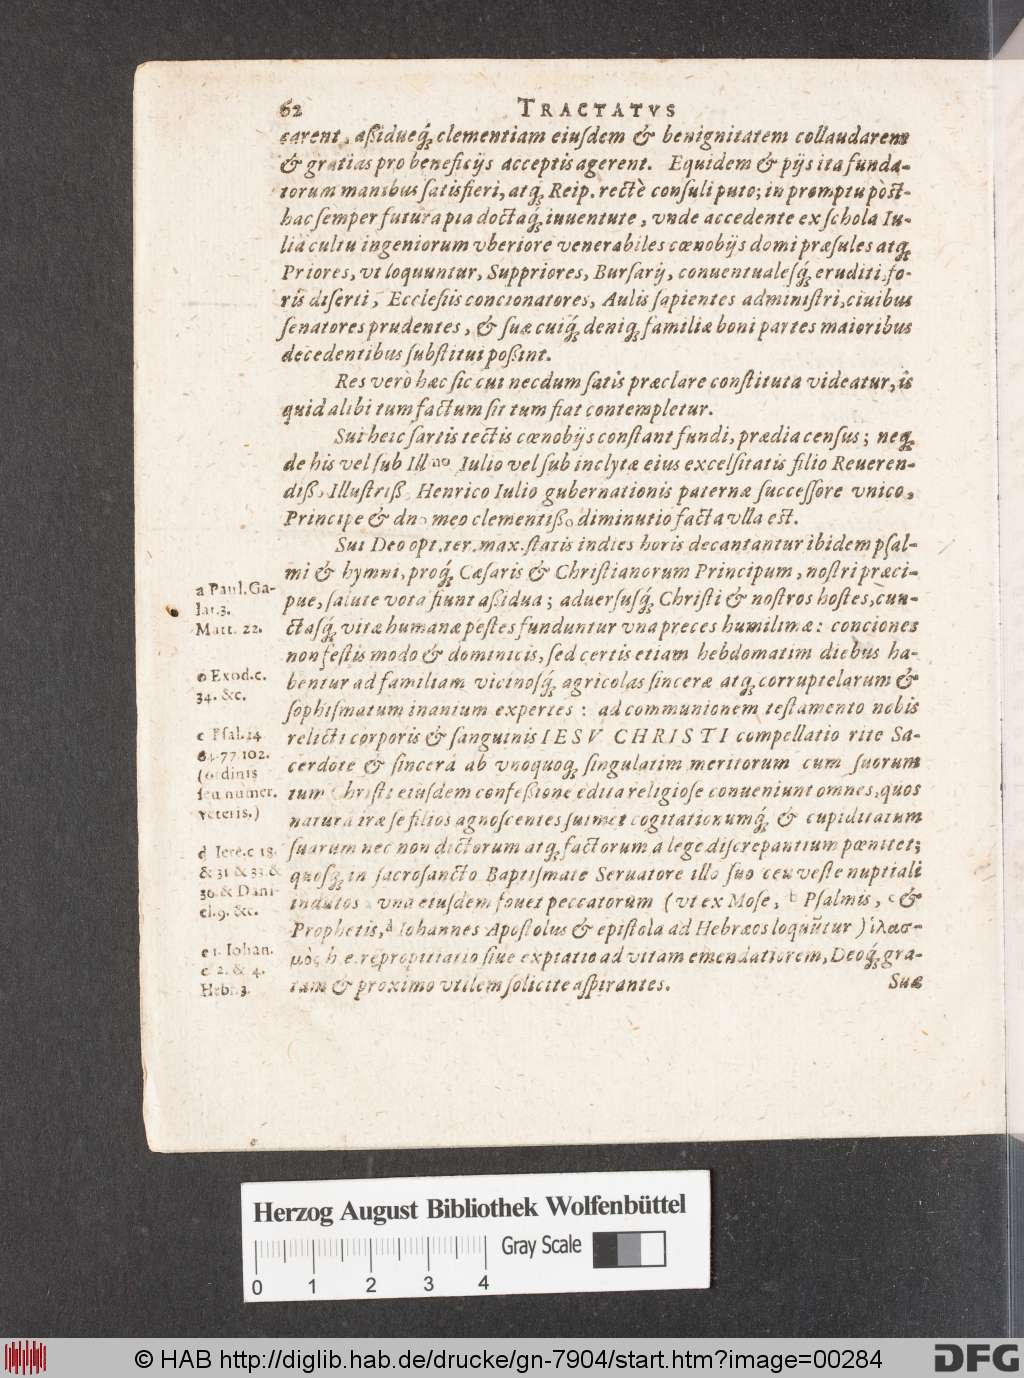 62 TRACTATVS
carent, aßidueq́; clementiam eiuſdem & benignitatem collaudarent
& gratias pro beneficijs acceptis agerent. Equidem & pijs ita funda-
torum manibus ſatisfieri, atq; Reip. rectè conſuli puto; in promptu pòst-
hac ſemper futura pia doctaq́; iuuentute, vnde accedente ex ſchola Iu-
lia cultu ingeniorum vberiore venerabiles cœnobijs domi præſules atq;
Priores, vt loquuntur, Suppriores, Burſarij, conuentualeſq́; eruditi, fo-
ris diſerti, Eccleſiis concionatores, Aulis ſapientes adminiſtri, ciuibus
ſenatores prudentes, & ſuæ cuiq́; deniq; familiæ boni partes maioribus
decedentibus ſubſtitui poßint.
Res verò hæc ſic cui necdum ſatis præclare conſtituta videatur, is
quid alibi tum factum ſit tum fiat contempletur.
Sui heic ſartis tectis cœnobijs conſtant fundi, prædia cenſus; neq;
de his vel ſub Ill.mo Iulio vel ſub inclytæ eius excelſitatis filio Reueren-
diß. Illuſtriß. Henrico Iulio gubernationis paternæ ſucceſſore vnico,
Principe & dno meo clementißo diminutio facta vlla est.
Sui Deo opt. ter. max. ſtatis indies horis decantantur ibidem pſal-
mi & hymni, proq́; Cæſaris & Chriſtianorum Principum, noſtri præci-
pue, ſalute vota fiunt aßidua; aduerſuſq́; Chriſti & noſtros hoſtes, cun-
ctaſq́; vitæ humanæ peſtes funduntur vna preces humilimæ: conciones
non feſtis modo & dominicis, ſed certis etiam hebdomatim diebus ha-
bentur ad familiam vicinoſq́; agricolas ſinceræ atq; corruptelarum &
ſophiſmatum inanium expertes: ad communionem teſtamento nobis
relicti corporis & ſanguinis IESV CHRISTI compellatio rite Sa-
cerdote & ſincerá ab vnoquoq; ſingulatim meritorum cum ſuorum
tum Chriſti eiuſdem confeßione edita religioſe conueniunt omnes, quos
naturá iræ ſe filios agnoſcentes ſuimet cogitationumq́; & cupiditatum
ſuarum nec non dictorum atq; factorum a lege diſcrepantium pœnitet;
quoſq́; in ſacroſancto Baptiſmate Seruatore illo ſuo ceu veſte nuptiali
indutos vna eiuſdem fouet peccatorum (vt ex Moſe, b Pſalmis, c &
Prophetis, d Iohannes Apoſtolus & epiſtola ad Hebræos loquũtur) ἱλασ-
μὸς h. e. repropitiatio ſiue expiatio ad vitam emendatiorem, Deoq́; gra-
tam & proximo vtilem ſolicite aſpirantes.
Suæ
a Paul. Ga-
lat. 3.
Matt. 22.
Exod. c.
34. &c.
c Pſal. 14
77. 102.
(ordinis
ſeu numer.
veteris.)
d Iere. c 18.
& 31 & 33 &
36. & Dani-
el. 9. &c.
e 1. Iohan.
c. 2. & 4.
Hebr. 3.
Herzog August Bibliothek Wolfenbüttel
Gray Scale
0 1 2 3 4
© HAB http://diglib.hab.de/drucke/gn-7904/start.htm?image=00284
DFG